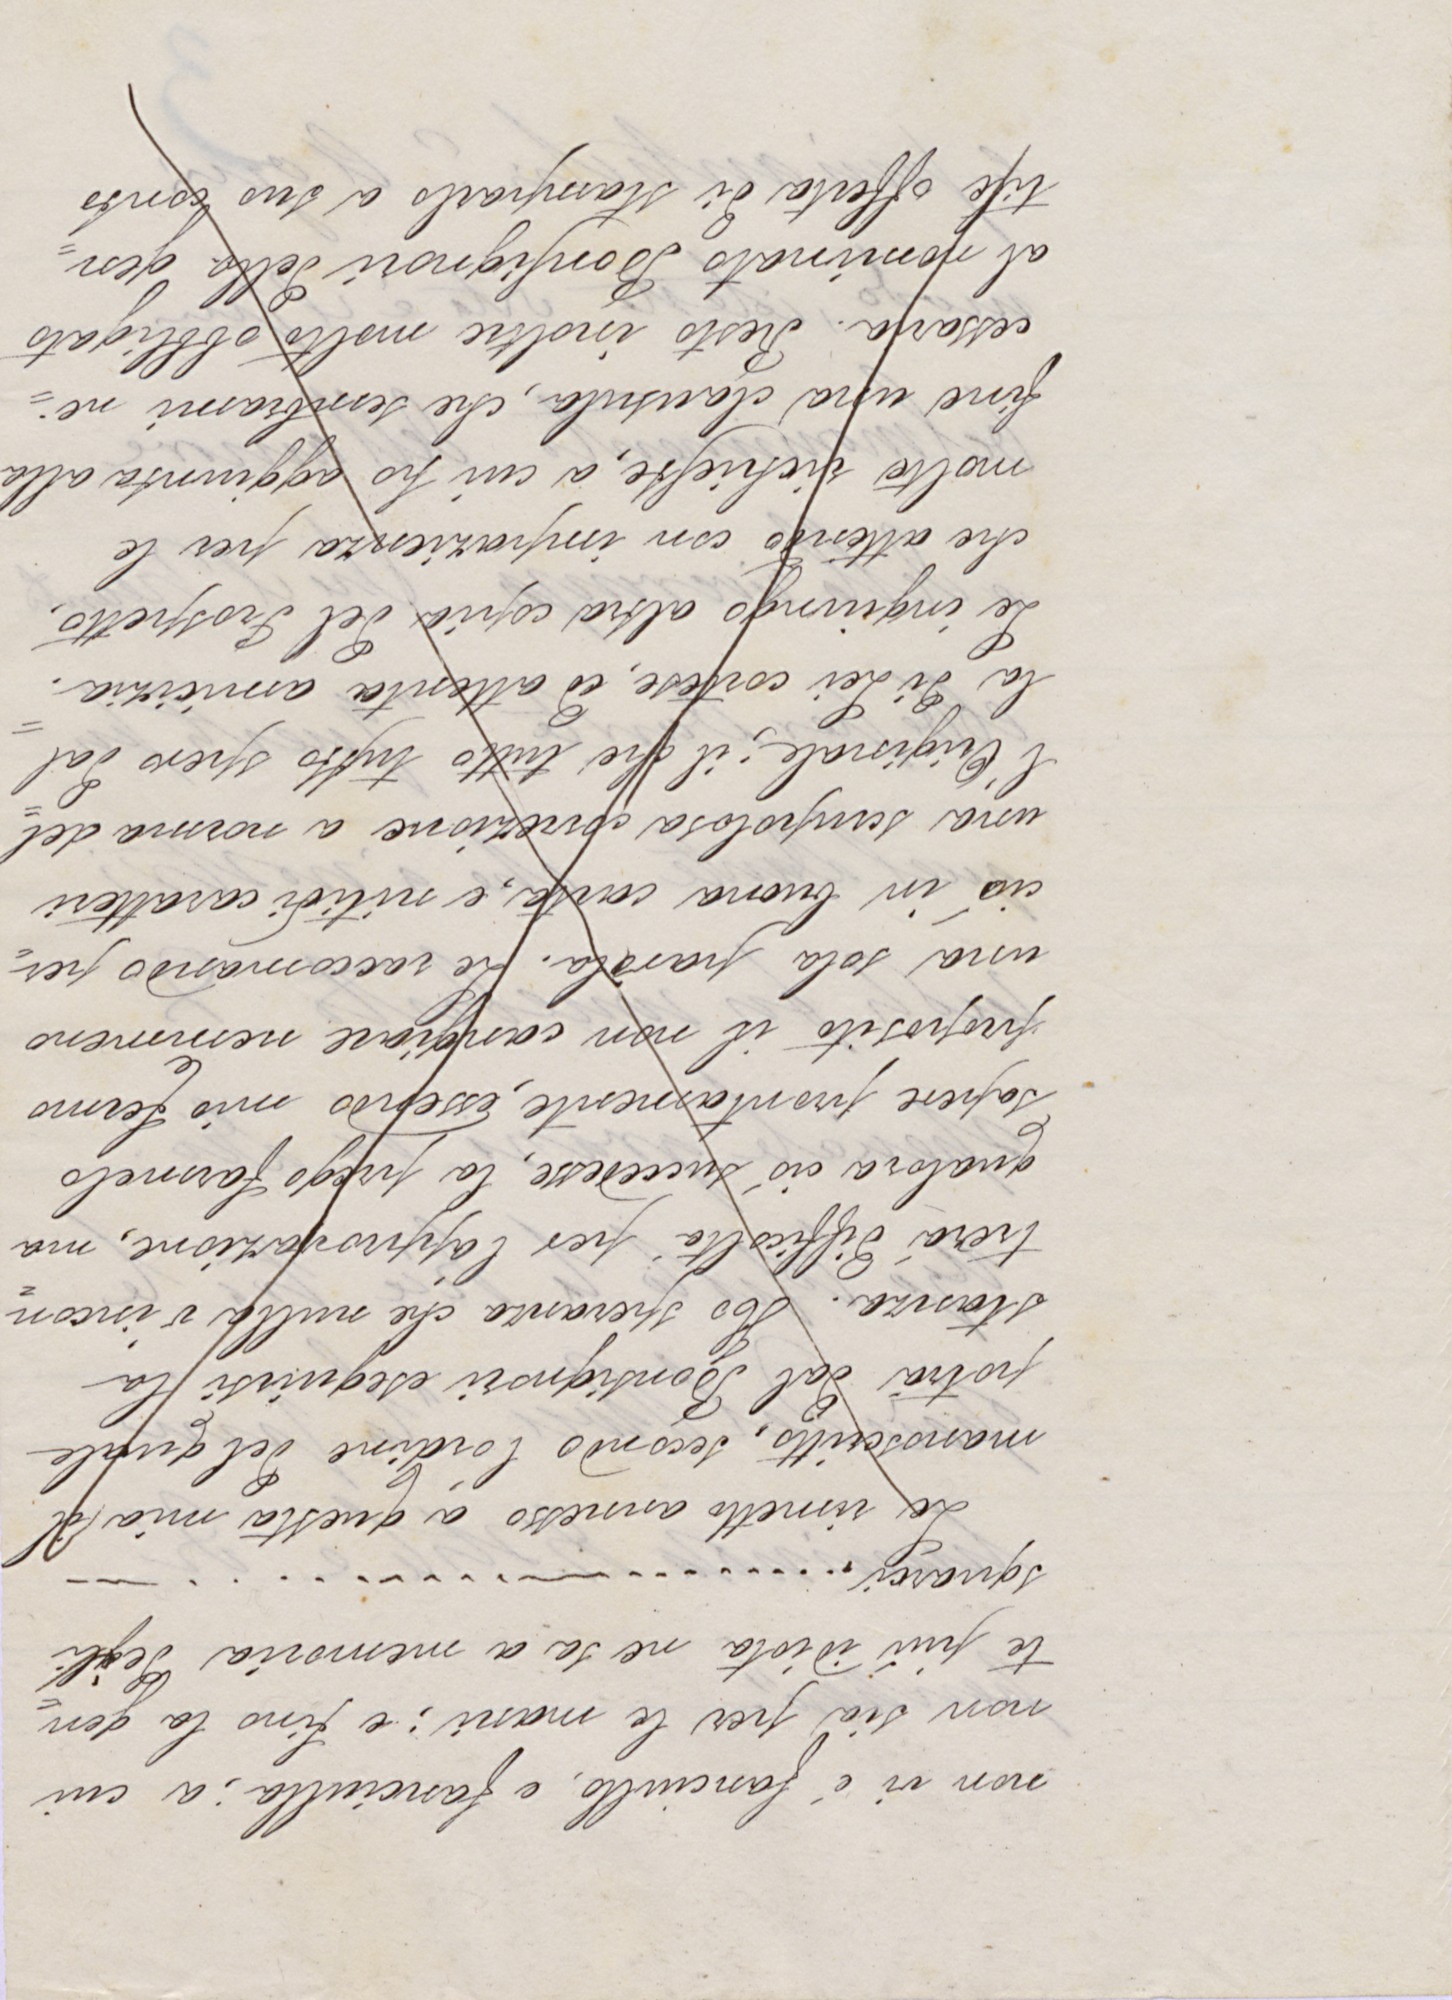 non vi è fanciullo, e fanciulla; a cui
non sia per le mani; e fino la gen=
te più idiota ne sa a memoria degli
squarci
Le rimetto annesso a questa mia il
manoscritto, secondo l'ordine del quale
potrà dal Bonsignori eseguirsi la
stanza. Ho speranza che nulla v'incon=
trerà difficoltà per l'approvazione, ma
qualora ciò succedesse, la prego farmelo
sapere prontamente, essendo mio fermo
proposito il non cangiare nemmeno
una sola parola. Le raccomando per=
ciò in buona carta, e nitidi caratteri
una scrupolosa correzione a norma del=
l'Originale; il che tutto spero dal=
la di Lei cortese, ed attenta amicizia.
Le ingiungo altra copia del Prospetto,
che attendo con impazienza per le
molte richieste, a cui ho aggiunta alla
fine una clausula, che sembrami ne=
cessaria. Resto inoltre molto obbligato
al nominato Bonsignori della gen=
tile offerta di stamparlo a suo conto
3